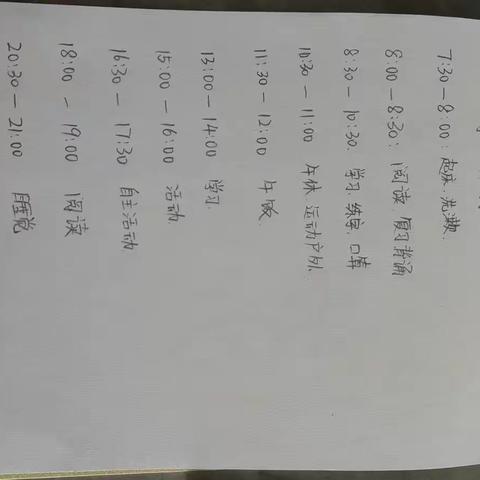 7:30—8:00: 起床、洗漱.
8:00—8:30: 阅读、复习背诵
8:30—10:30. 学习、练字、口算
10:30—11:00 午休、运动户外.
11:30—12:00 午饭、
13:00—14:00 学习.
15:00—16:00 活动
16:30—17:30 自主活动
18:00—19:00 阅读
20:30—21:00 睡觉